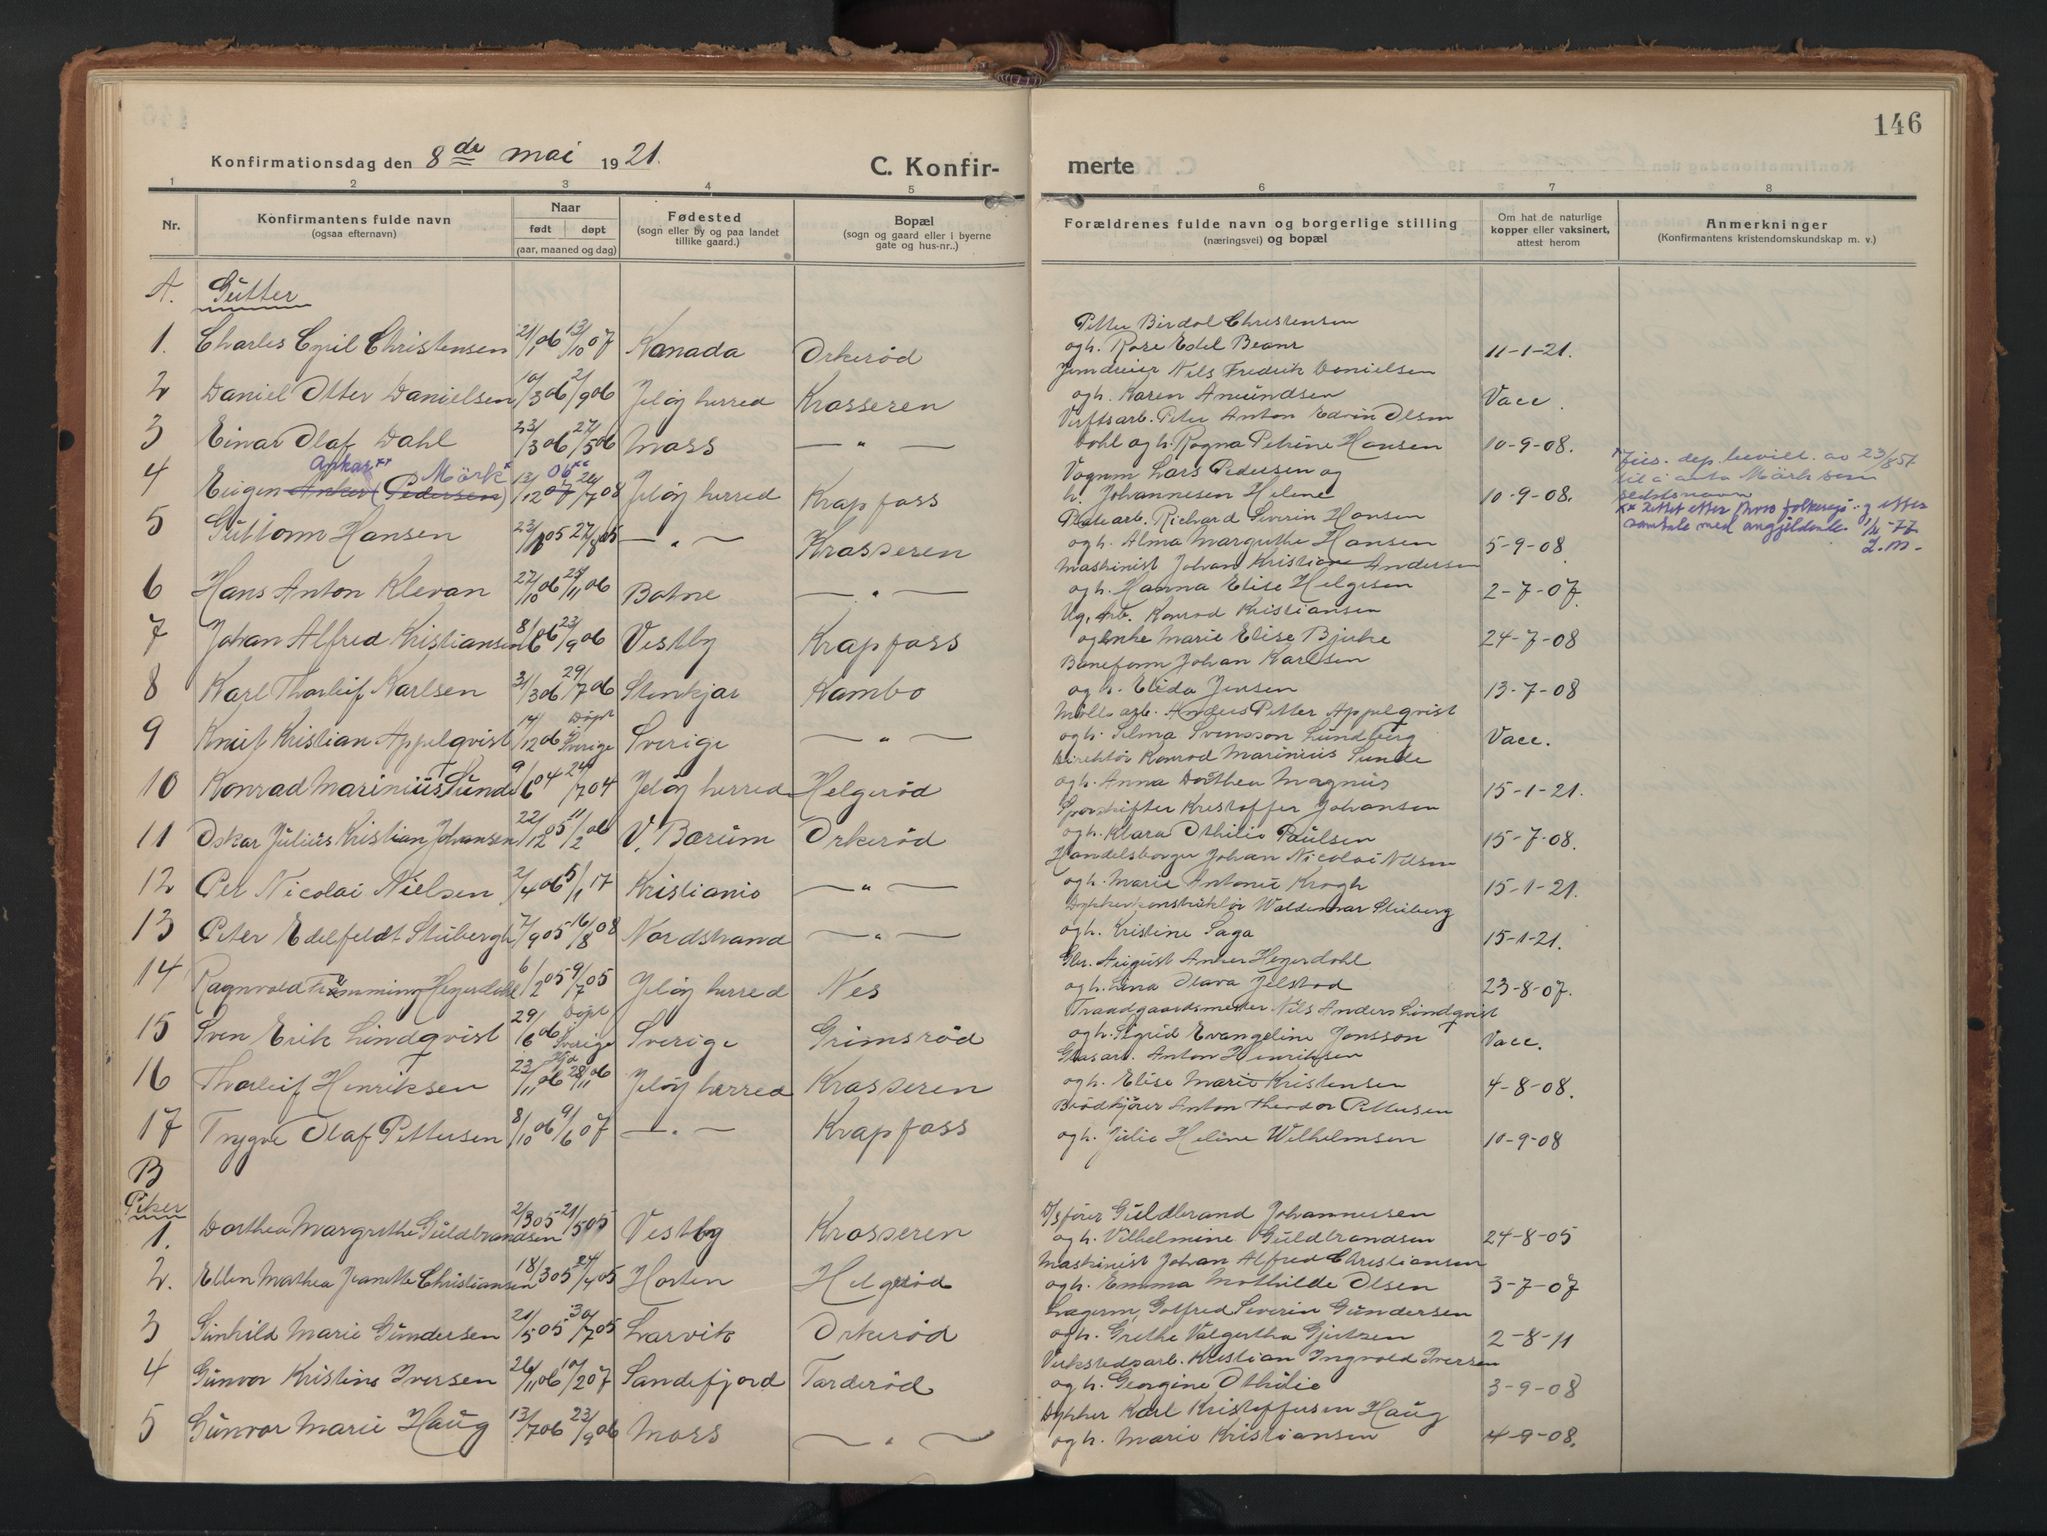 146
Konfirmationsdag den 8de mai 1921.
C. Konfirmerte
1 2 3 4 5 6 7 8
Nr.
Konfirmantens fulde navn
(ogsaa efternavn)
Naar
født døpt
(aar, maaned og dag)
Fødested
(sogn eller by og paa landet
tillike gaard.)
Bopæl
(sogn og gaard eller i byerne
gate og hus-nr..)
Forældrenes fulde navn og borgerlige stilling
(næringsvei) og bopæl
Om hat de naturlige
kopper eller vaksinert,
attest herom
Anmerkninger
(Konfirmantens kristendomskundskap m. v.)
A. Gutter
Petter Birdal Christensen
1. Charles Cyril Christensen 21/1 06 13/10 07 Kanada Orkerød og h. Rose Edel 11-1-21.
Nils Fredrik Danielsen
2 Daniel Otter Danielsen 10/3 06 2/9 06 Jeløy herred Krosseren og h. Karen Amundsen Vacc.
Verftsarb. Peter Anton Edvin Olsen
3 Einar Olaf Dahl 23/3 06 27/5 06 Moss — „ — Dahl og h. Ragna Petrine Hansen 10-9-08.
Vognm Lars Pedersen og
4 Eugen Anker (Pedersen) Ankar** Mörk* 13/12 07 06** 26/7 08 Jeløy herred Krapfoss h. Johannesen Helene 10-9-08.
* Jus. dep. bevilt. av 23/8 51
til å anta Mörk som
slektsnavn
** Rettet etter hvro folkereg. og etter
samtale med angjeldende 1/2-77
Richard Severin Hansen
5 Guttorm Hansen 05 27/8 05 — „ — Krosseren og h. Alma Margrethe Hansen 5-9-08
Maskinist Johan Kristian Andersen
6 Hans Anton Klevan 27/10 06 25/11 06 Botne — „ — og h. Hanna Elise Helgesen 2-7-07.
Konrad Kristiansen
7 Johan Alfred Kristiansen 8/6 06 23/9 06 Vestby Krapfoss og enke Marie Elise Bjerke 24-7-08
Baneform Johan Karlsen
8 Karl Thorleif Karlsen 31/3 06 29/7 06 Stenkjær Kambo og h. Elida Jensen 13-7-08
Mölle arb. Anders Petter Appelqvist
9 Knut Kristian Appelqvist 14/12 06 Døpt i Sverige Sverige — „ — og h. Selma Svensson Lundberg Vacc.
Direktör Konrad Marinius Sunde
10 Konrad Marinius Sunde 9/6 04 24/7 04 Jeløy herred Helgerød og h. Anna Dorthea Magnus 15-1-21.
Sporskifter Kristoffer Johansen
11 Oskar Julius Kristian Johansen 22/12 05 11/2 06 V. Bærum Orkerød og h. Klara Othilie Paulsen 15-7-08.
Handelsborger Johan Nicolai Nilsen
12 Per Nicolai Nielsen 2/4 06 5/1 17 Kristiania — „ — og h. Marie Antonie Krogh 15-1-21.
Dykkerkonstruktör Waldemar Stuberg
13 Peter Edelfeldt Stubergh 7/9 05 16/8 08 Nordstrand — „ — og h. Kristine Saga 15-1-21.
August Anker Heyerdahl
14 Ragnvald Flemming Heyerdahl 6/2 05 9/7 05 Jeløy herred Nes og h. Lina Olava Jelstad 23-8-07.
Traadgaardsmester Nils Anders Lindqvist
15 Sven Erik Lindqvist 29/6 06 Døpt i Sverige Sverige Grimsrød og h. Sigrid Evangeline Jonsson Vacc.
Glasarb. Anton Henriksen
16 Thorleif Henriksen 23/11 06 28/11 06 Jeløy herred Krosseren og h. Elise Marie Kristensen 4-8-08.
Brödkjörer Anton Theodor Pettersen
17 Trygve Olaf Pettersen 8/10 06 9/6 07 — „ — Krapfoss og h. Julie Heline Wilhelmsen 10-9-08
B
Piker
Guldbrand Johannessen
1. Dorthea Margrethe Guldbrandsen 2/3 05 21/5 05 Vestby Krosseren og h. Vilhelmine Guldbrandsen 24-8-05
Maskinist Johan Alfred Christiansen
2. Ellen Mathea Jeanette Christiansen 18/3 05 24/4 05 Horten Helgerød og h. Emma Mathilde Olsen 3-7-07
Lagerm. Gotfred Severin Gundersen
3 Gunhild Marie Gundersen 21/5 05 30/7 05 Larvik Orkerød og h. Grethe Valgertha Gjertsen 2-8-11
Verkstedsarb. Kristian Ingvald Iversen
4 Gunvor Kristine Iversen 26/11 06 10/2 07 Sandefjord Tarderød og h. Georgine Othilie 3-9-08
Dykker Karl Kristoffersen Haug
5 Gunvor Marie Haug 13/7 06 23/9 06 Moss — „ — og h. Marie Kristiansen 4-9-08.